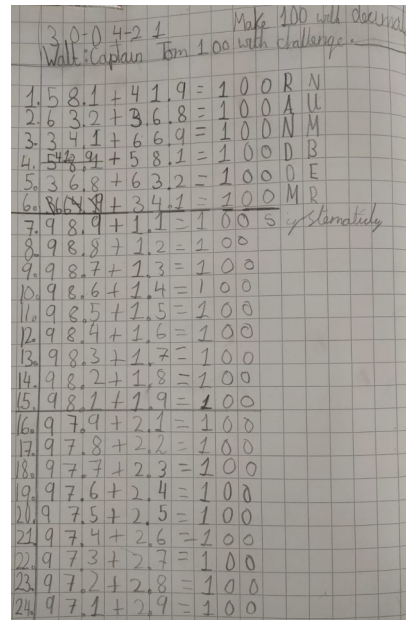 Make 100 with decimal
30-04-21
Walt: Captain Tom 100 with challenge.
1. 58.1+41.9=100 R N
2. 63.2+36.8=100 A U
3. 34.1+66.9=100 N M
4. +58.1=100 D B
5. 36.8+63.2=100 O E
6. +34.1=100 M R
7. 98.9+1.1=100 systematicly
8. 98.8+1.2=100
9. 98.7+1.3=100
10. 98.6+1.4=100
11. 98.5+1.5=100
12. 98.4+1.6=100
13. 98.3+1.7=100
14. 98.2+1.8=100
15. 98.1+1.9=100
16. 97.9+2.1=100
17. 97.8+2.2=100
18. 97.7+2.3=100
19. 97.6+2.4=100
20. 97.5+2.5=100
21. 97.4+2.6=100
22. 97.3+2.7=100
23. 97.2+2.8=100
24. 97.1+2.9=100